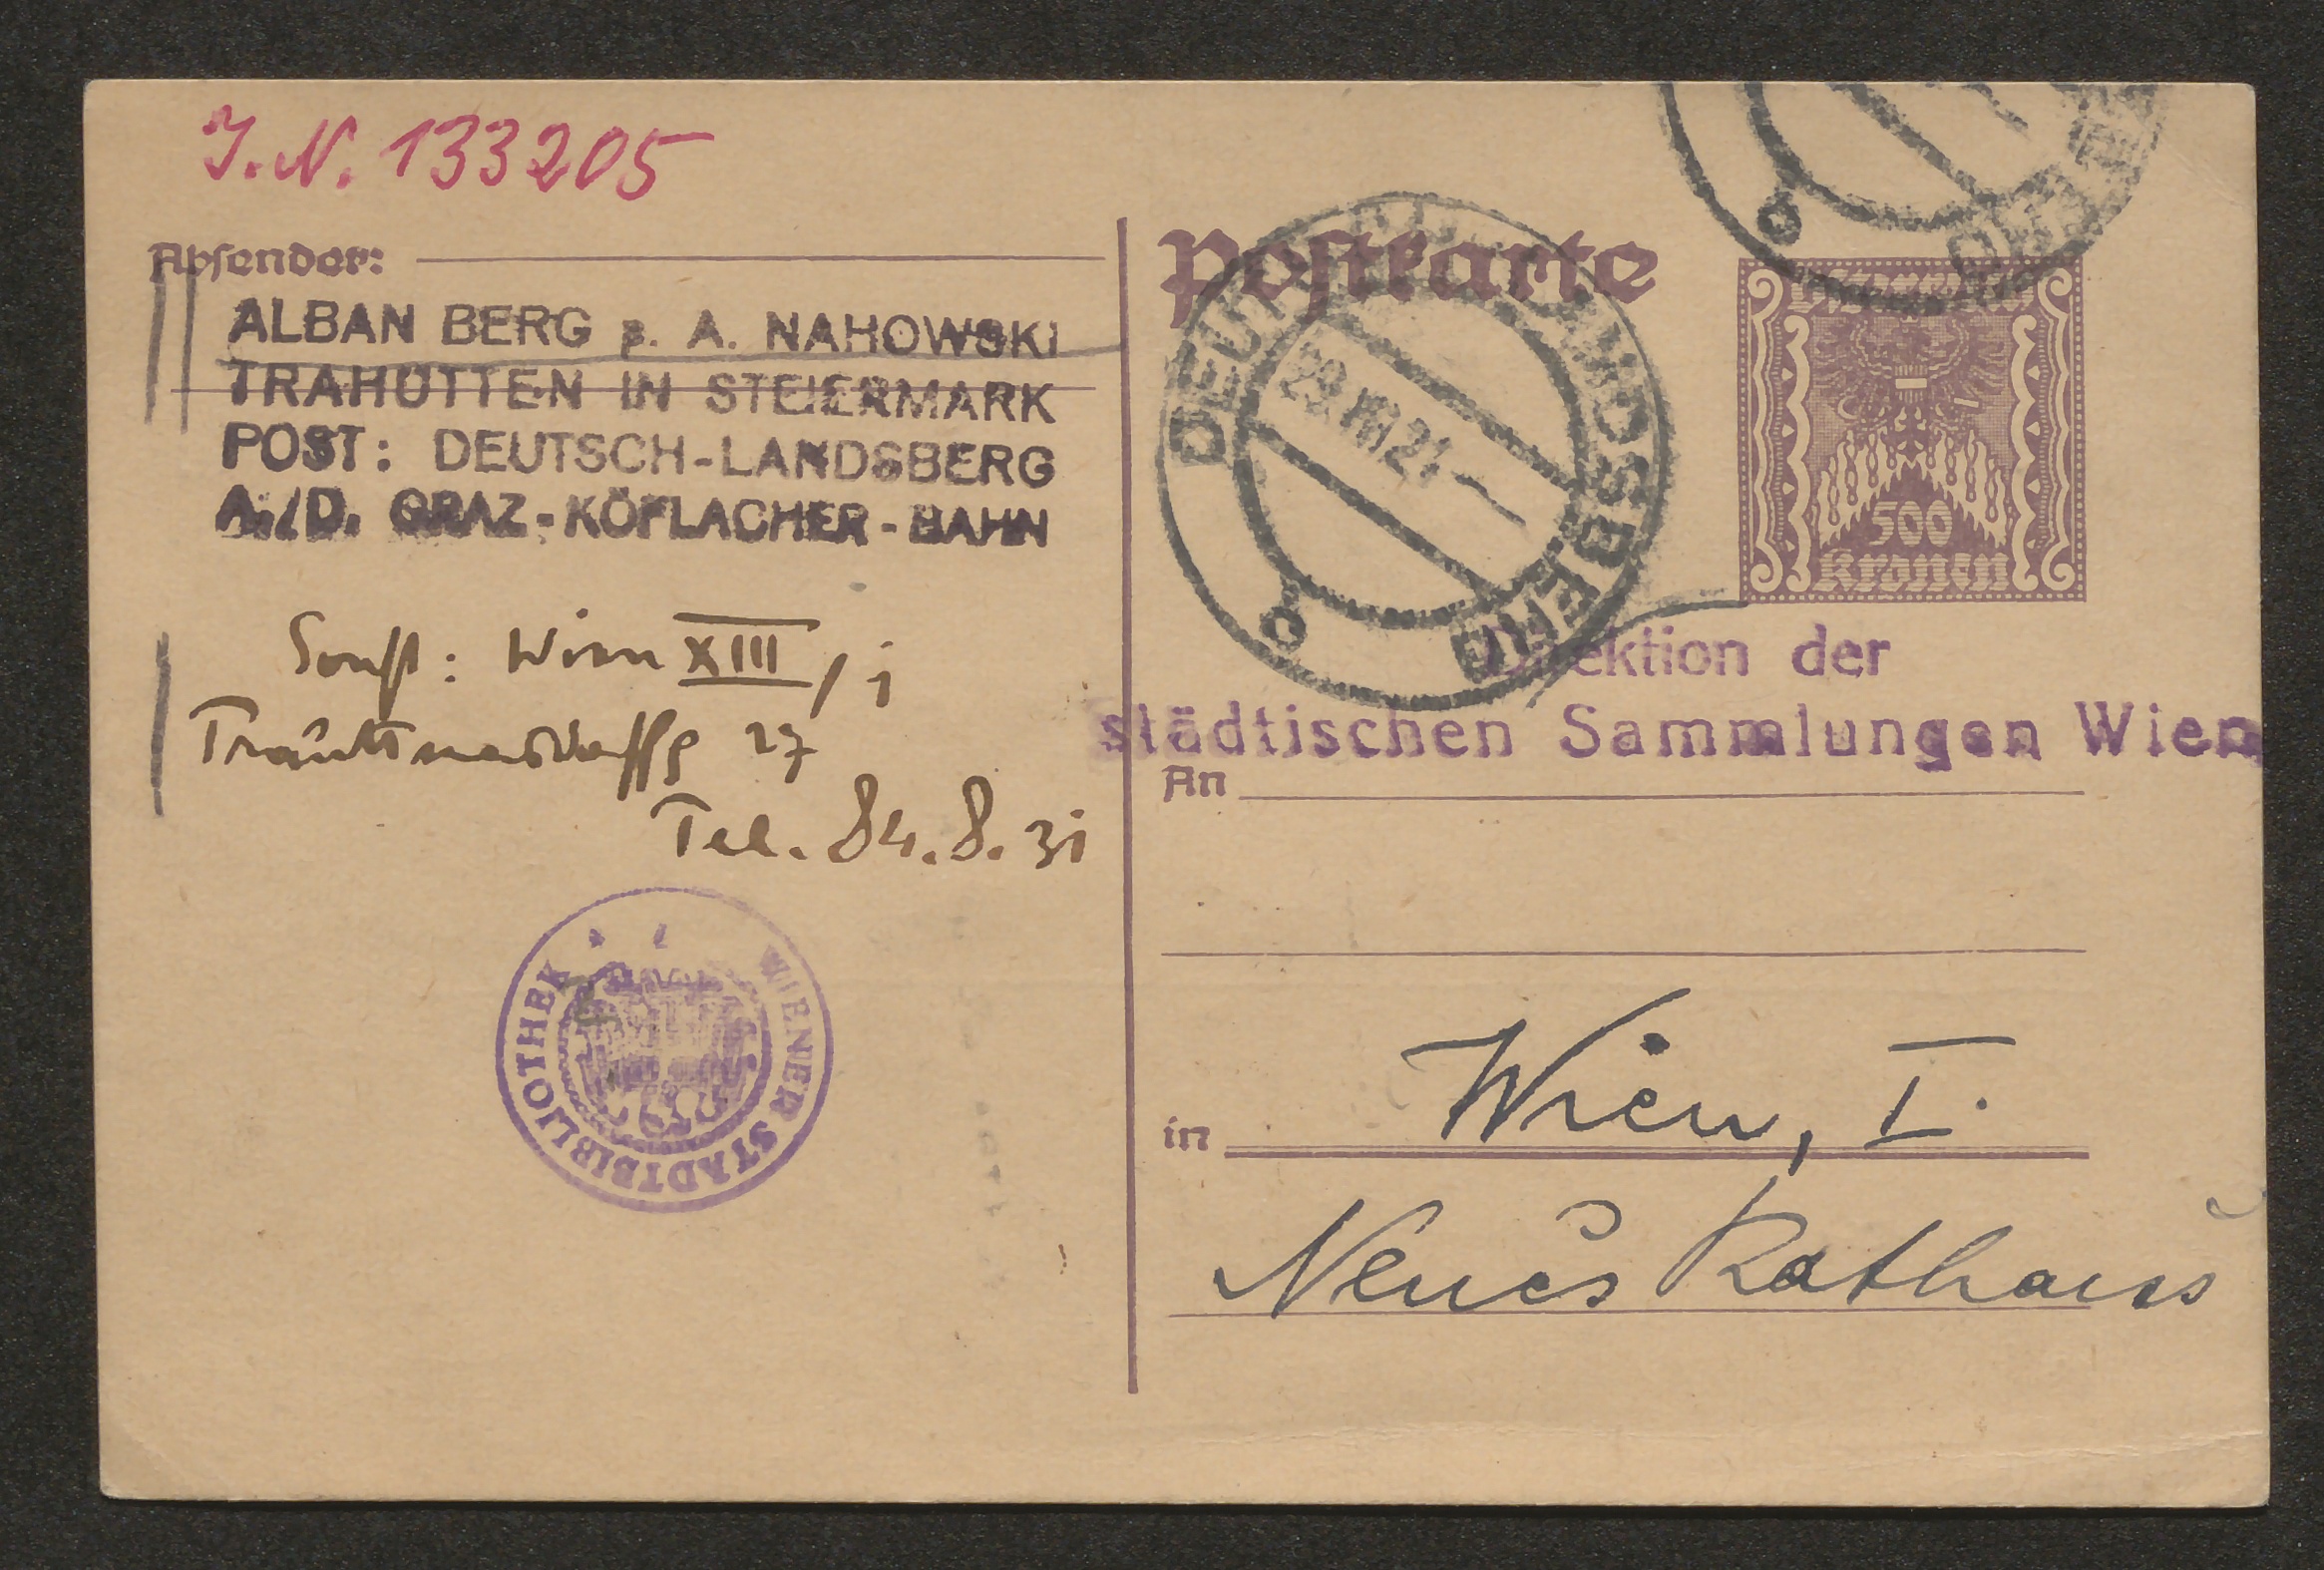 J.N. 133205
Absender:
ALBAN BERG p. A. NAHOWSKI
TRAHÜTTEN IN STEIERMARK
POST: DEUTSCH-LANDSBERG
A./D. GRAZ-KÖFLACHER-BAHN
Sonst: Wien XIII/1
Trauttmansdorffg 27
Tel. 84.8.31
WIENER STADTBIBLIOTHEK
Postkarte
DEUTSCH LANDSBERG
29.VIII.24
500
Kronen
Direktion der
städtischen Sammlungen Wien
An
in Wien, I.
Neues Rathaus